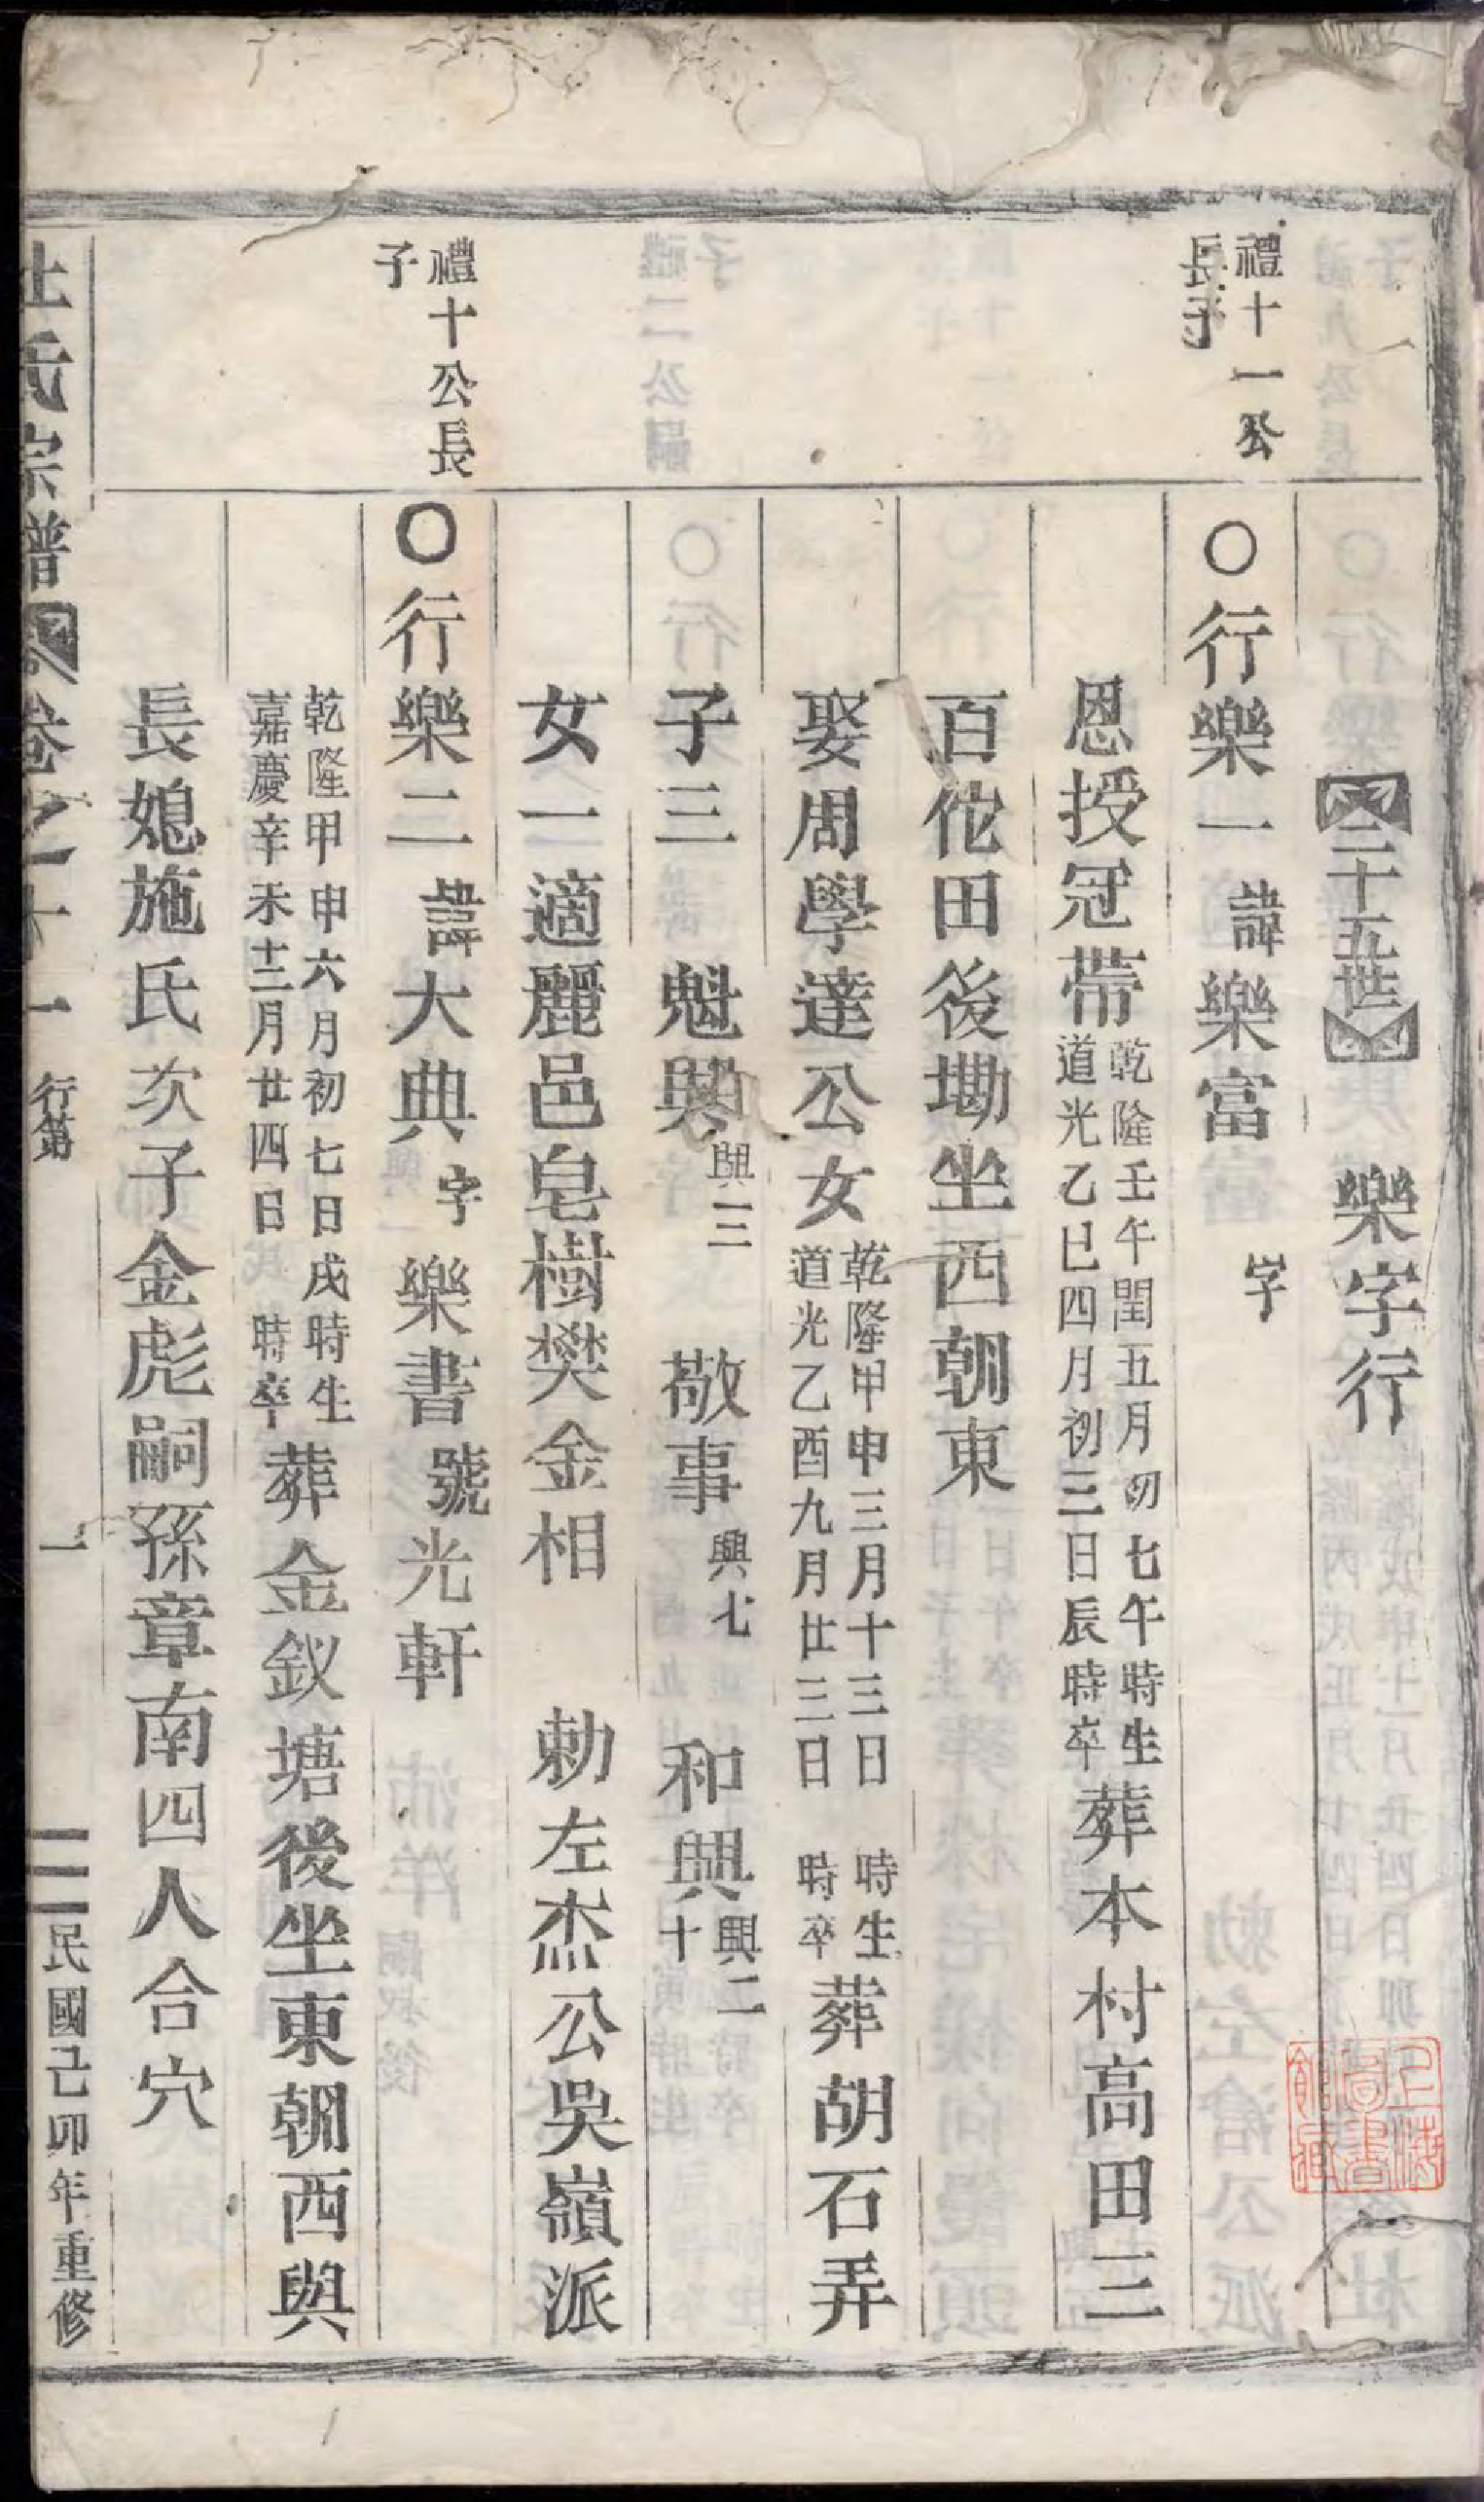 二十五世　樂字行
禮十一公
長子
○行樂一諱樂富　字
恩授冠帶
乾隆壬午閏五月初七午時生
道光乙巳四月初三日辰時卒
葬本村高田三
百佗田後塝坐西朝東
娶周學達公女
乾隆甲申三月十三日　時生
道光乙酉九月廿三日　時卒
葬胡石弄
子三　魁興 興三　敬事 興七　和興 興二十
女一適麗邑皂樹樊金相　勅左杰公吳嶺派
禮十公長
子
○行樂二諱大典字樂書號光軒
乾隆甲申六月初七日戌時生
嘉慶辛未十二月廿四日　時卒
葬金釵塘後坐東朝西與
長媳施氏次子金彪嗣孫章南四人合穴
杜氏宗譜 卷之十一 行第　一　民國己卯年重修
上海圖書館藏